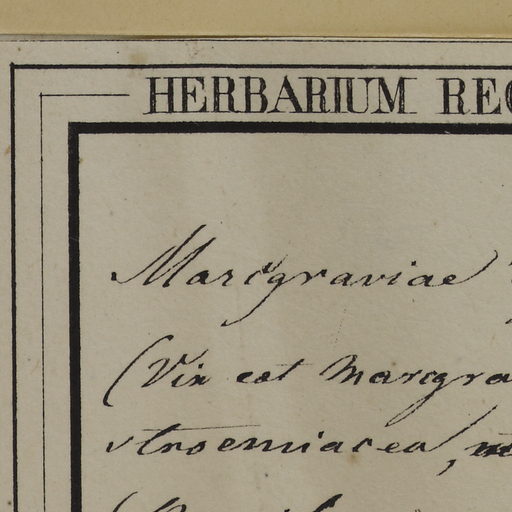 HERBARIUM REG
Marcgraviae
(Vix est Marcgra
stroemiacea,